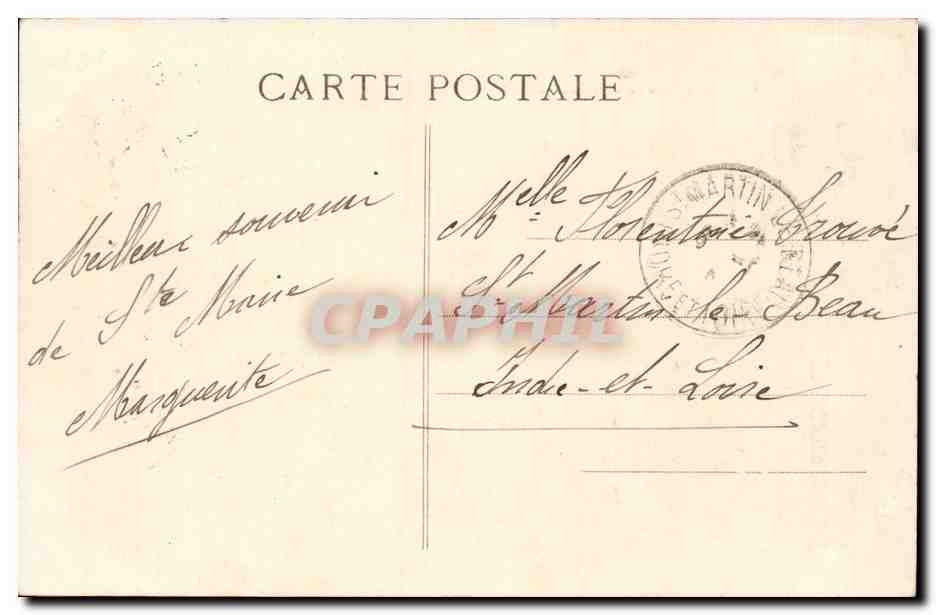 CARTE POSTALE
Meilleur souvenir
de Ste Maure
Marguerite
Melle Florentine Trouvé
St Martin le Beau
Indre-et-Loire
ST MARTIN
CPAPHIL